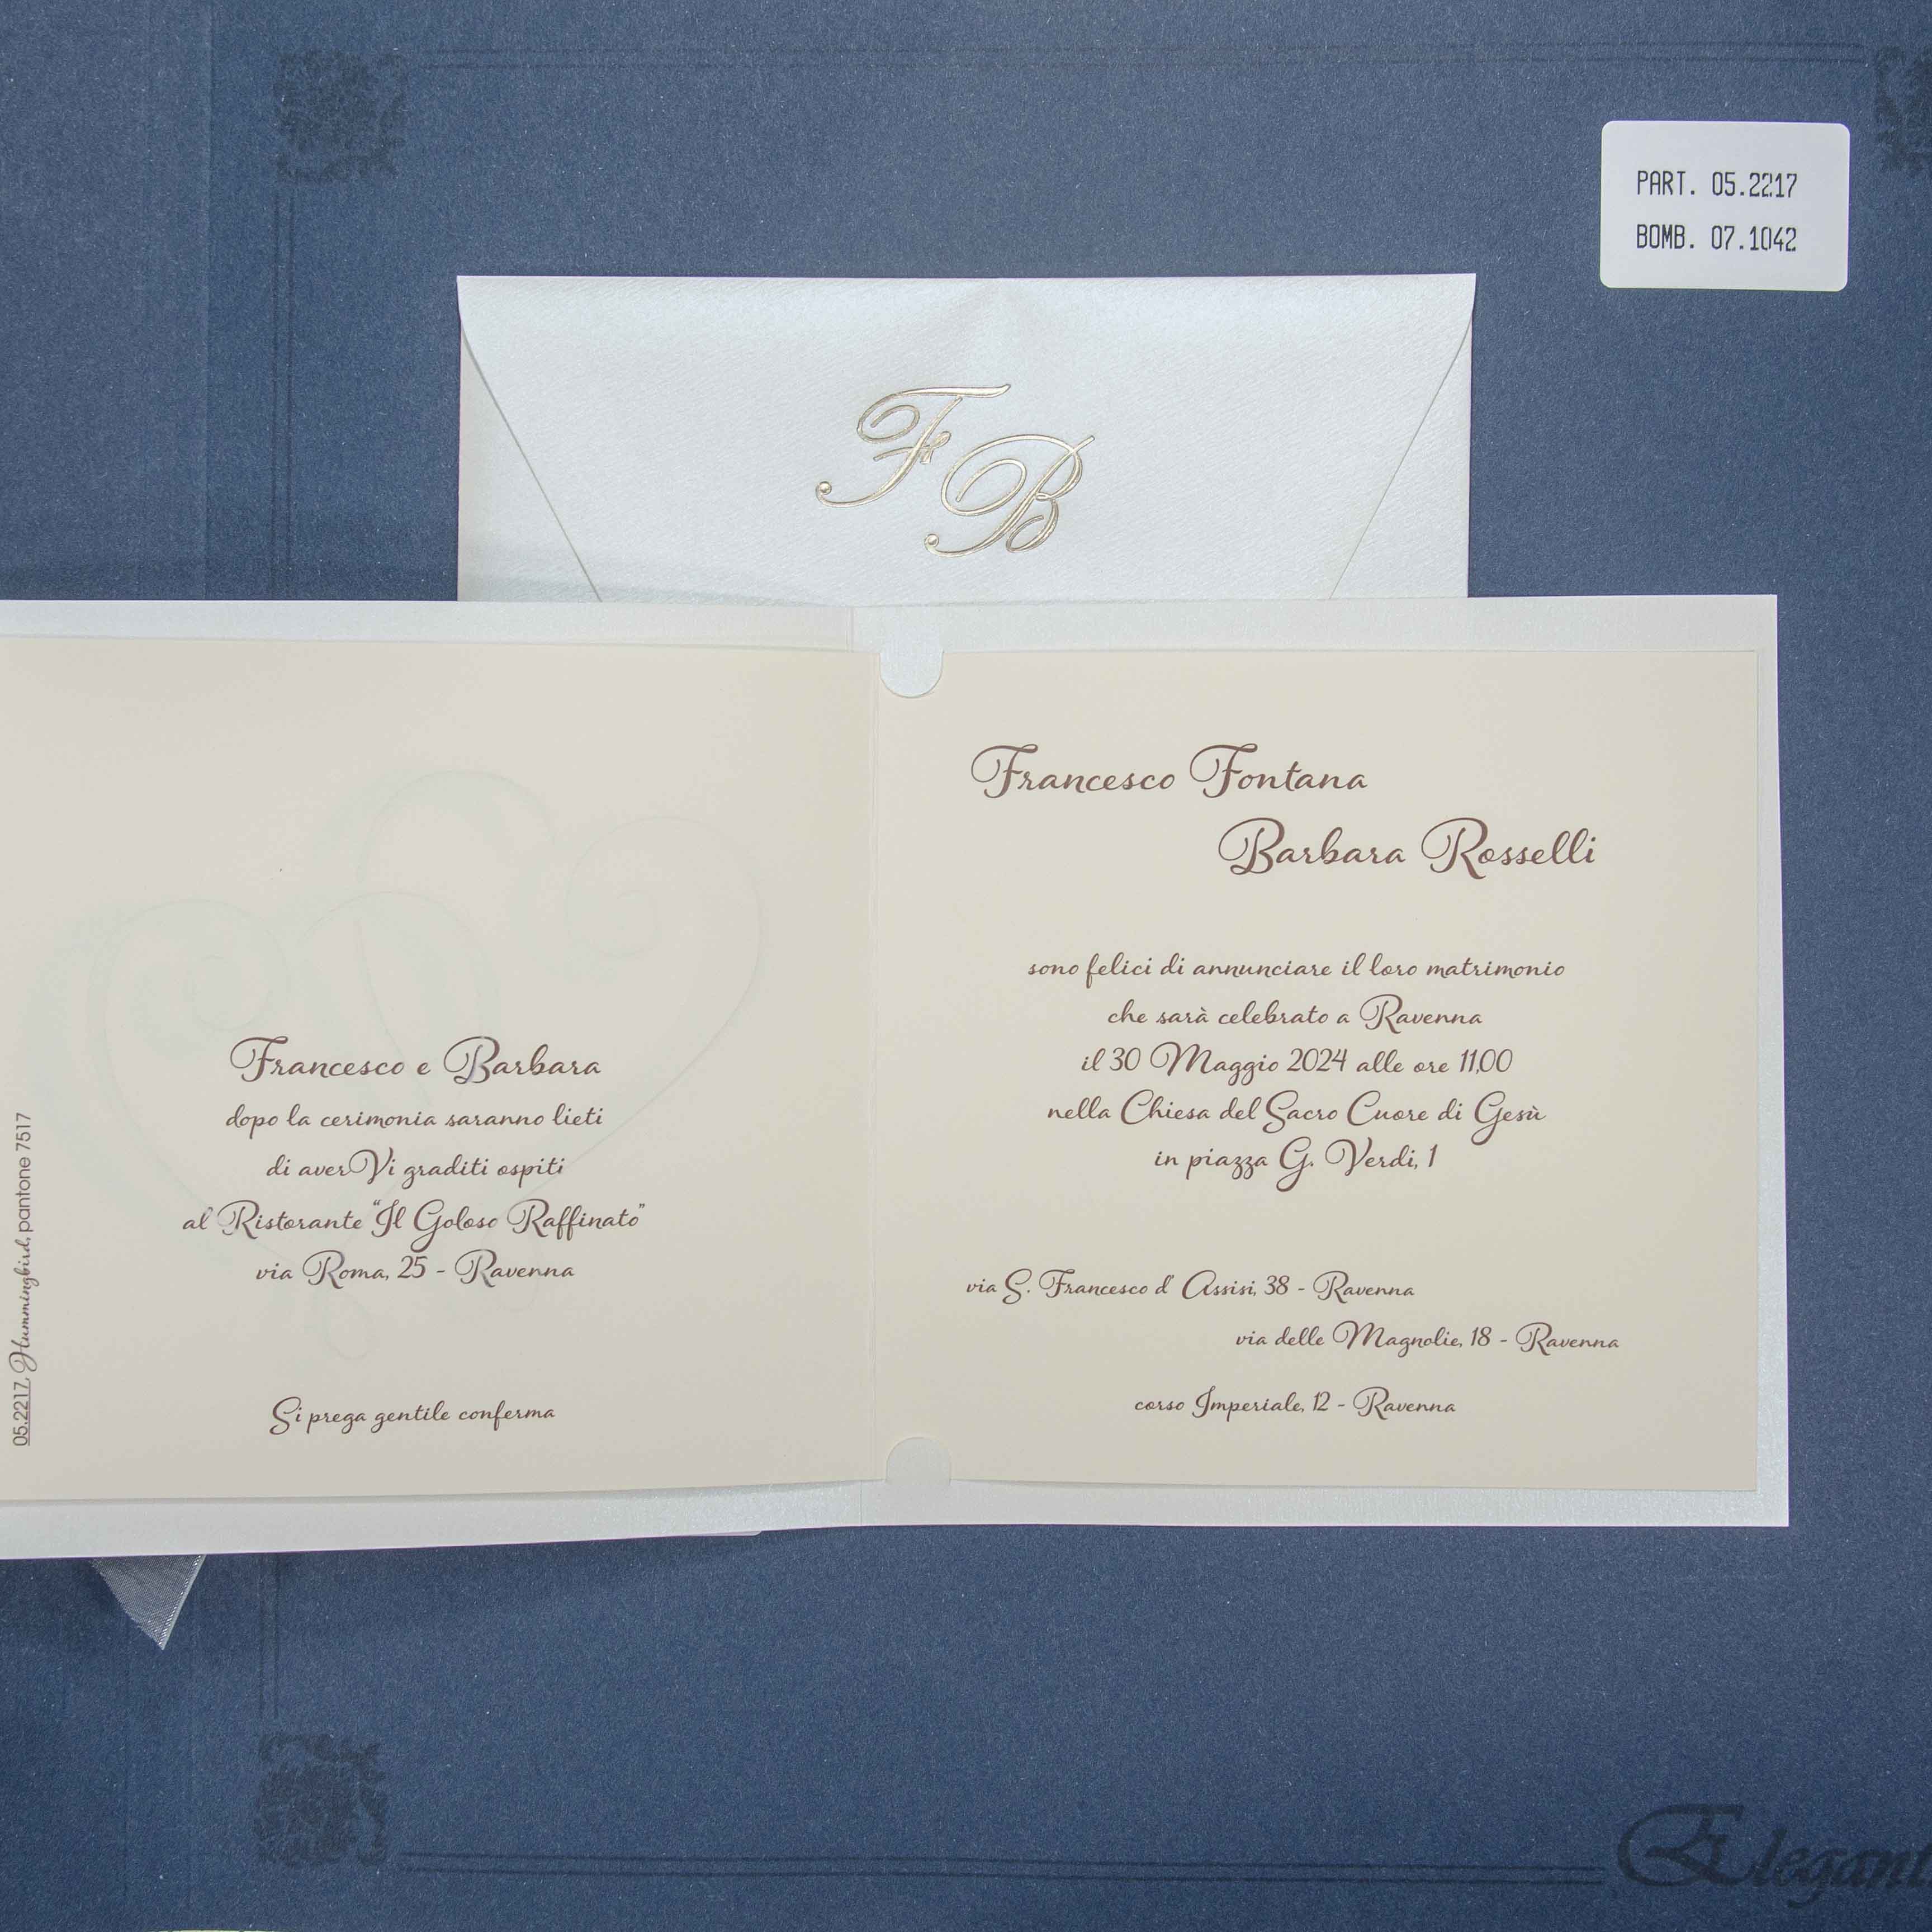 PART. 05.2217
BOMB. 07.1042
F B
05.2217, Hummingbird, pantone 7517
Francesco e Barbara
dopo la cerimonia saranno lieti
di averVi graditi ospiti
al Ristorante "Il Goloso Raffinato"
via Roma, 25 - Ravenna
Si prega gentile conferma
Francesco Fontana
Barbara Rosselli
sono felici di annunciare il loro matrimonio
che sarà celebrato a Ravenna
il 30 Maggio 2024 alle ore 11,00
nella Chiesa del Sacro Cuore di Gesù
in piazza G. Verdi, 1
via S. Francesco d' Assisi, 38 - Ravenna
via delle Magnolie, 18 - Ravenna
corso Imperiale, 12 - Ravenna